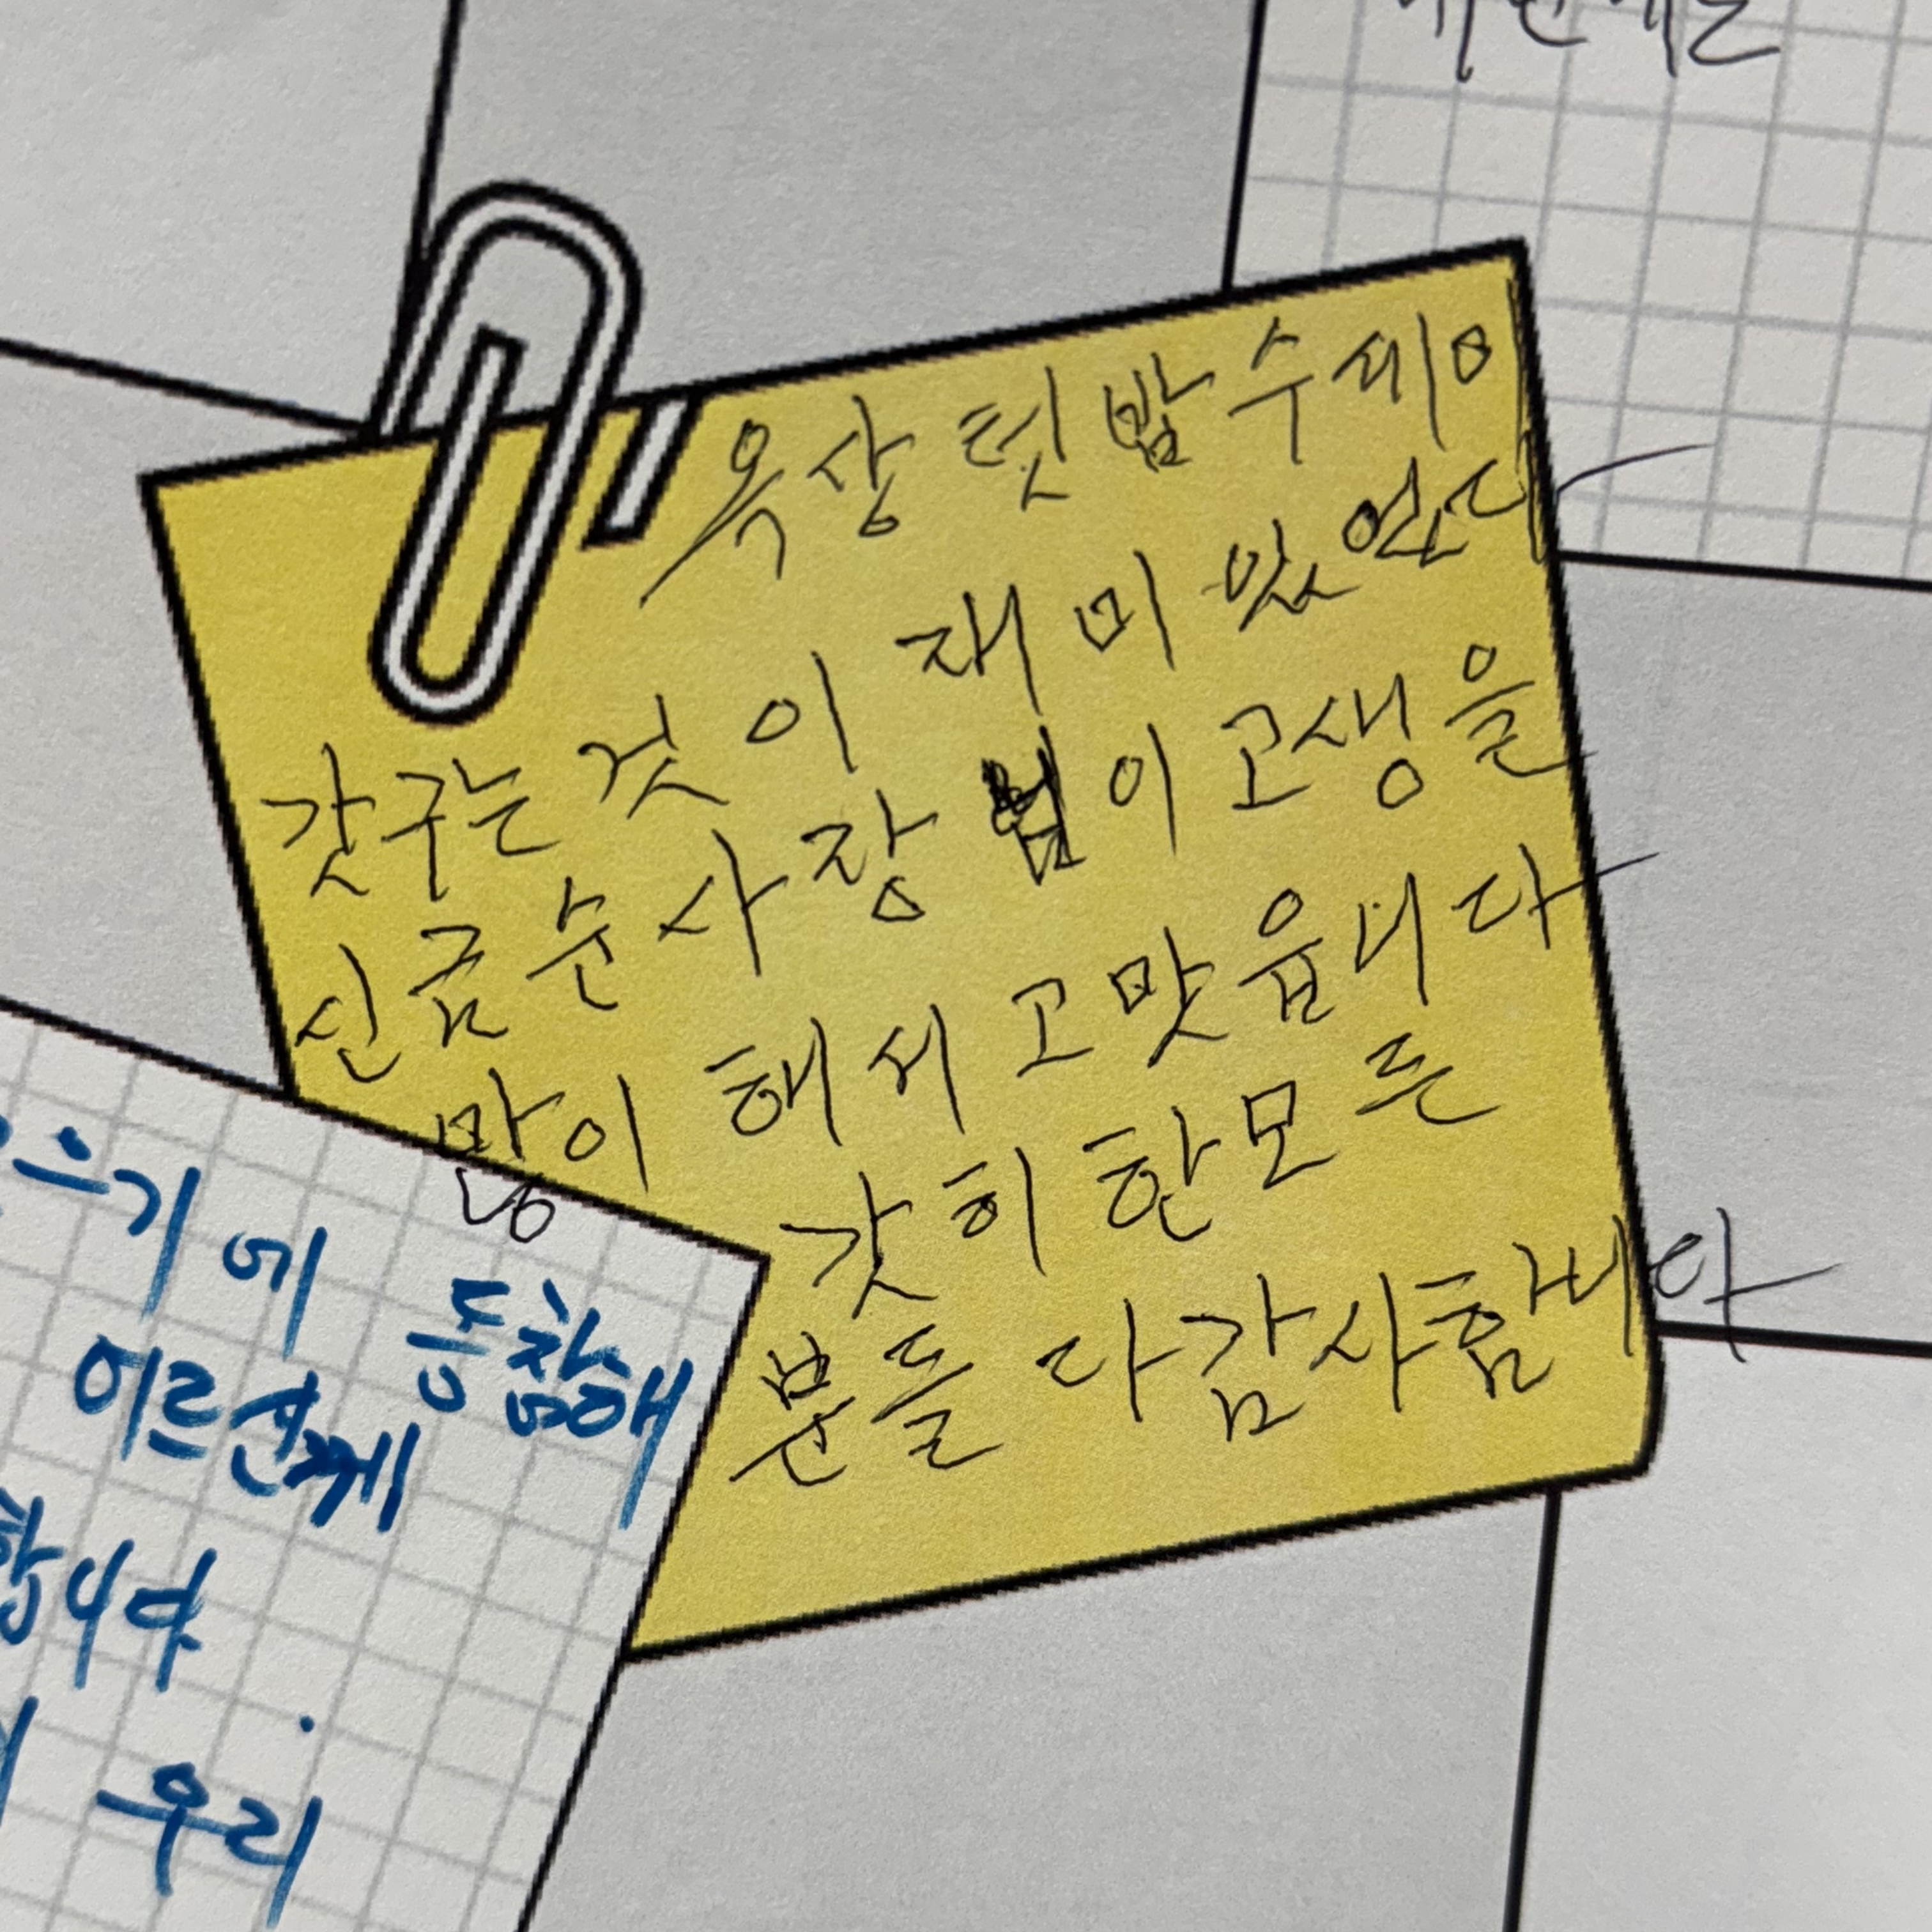 옥상 텃밭 수세미
갓구는 것이 재미 있었다
신금순 사장 님이 고생을
많이 해서 고맛읍니다
갓히 한 모든
분들 다 감사함니다
으기에 동참해
어르신께
합니다
우리